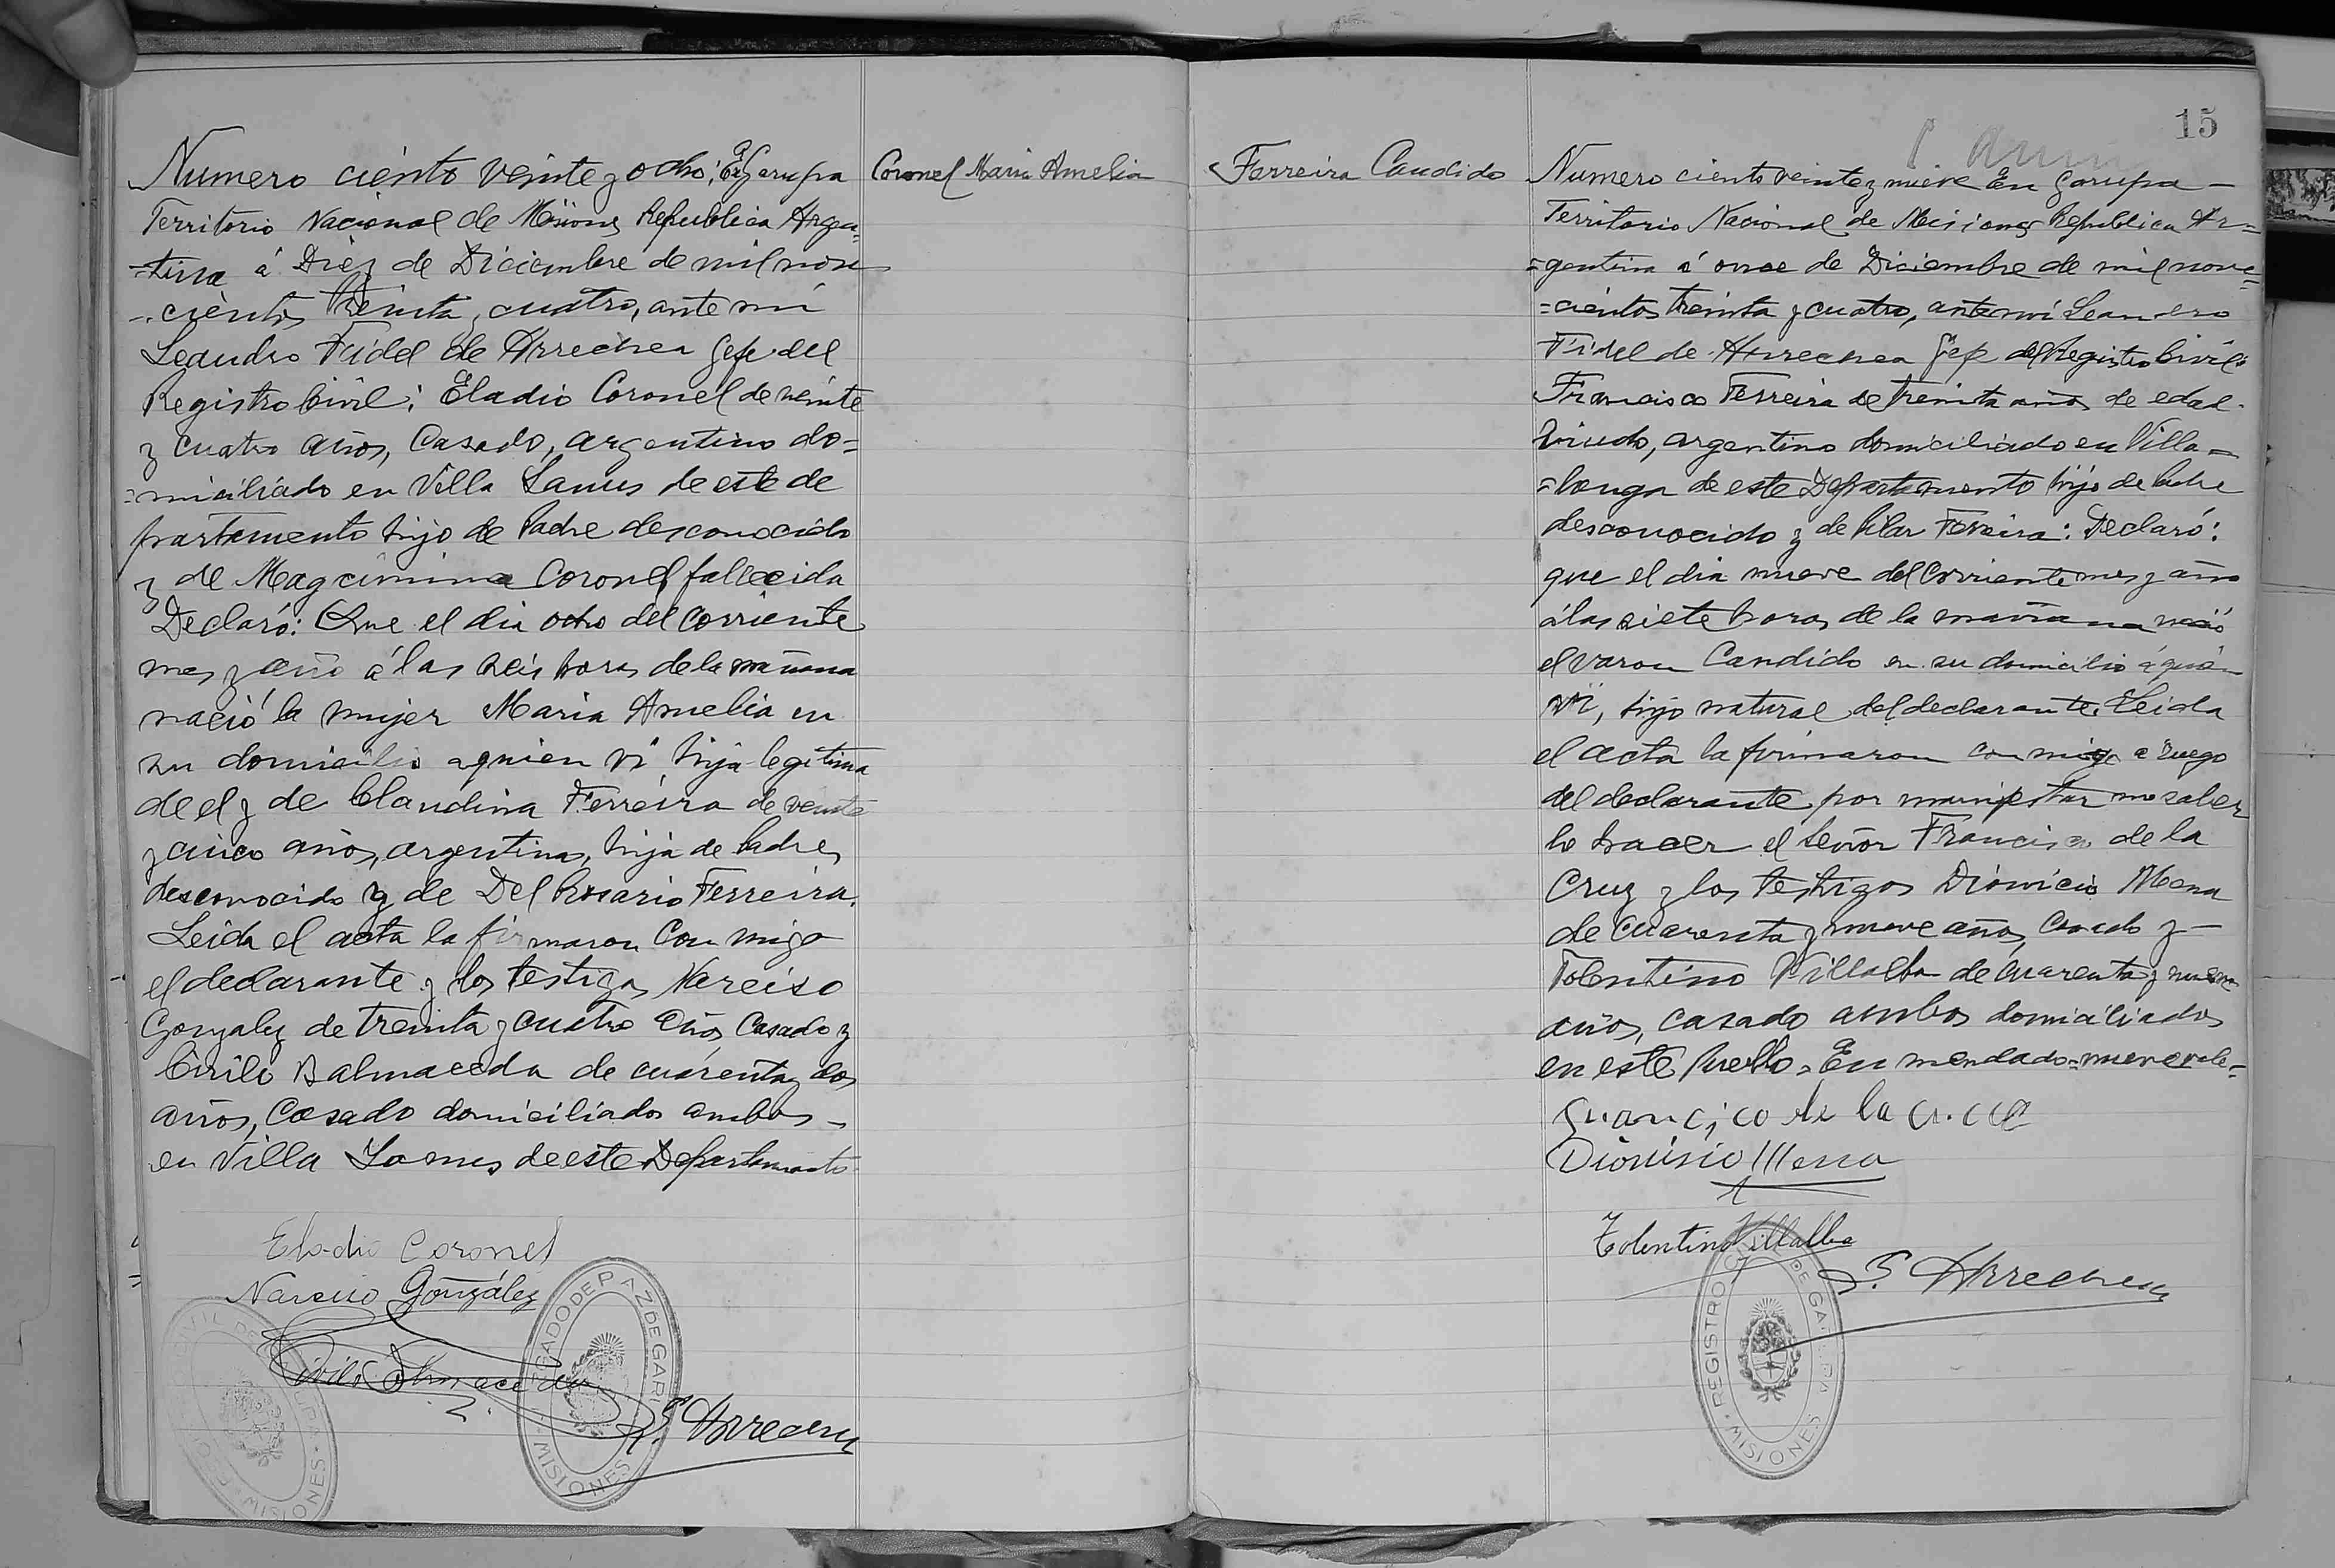 Numero ciento veinte y ocho: En Garupa
Territorio Nacional de Misiones Republica Argen=
=tina á Diez de Diciembre de mil nove
=cientos treinta y cuatro, ante mi
Leandro Fidel de Arrechea Gefe del
Registro Civil: Eladio Coronel de veinte
y cuatro años, Casado, argentino do=
=miciliado en Villa Lanus de este de
partamento hijo de Padre desconocido
y de Magcimina Coronel fallecida
Declaró: Que el dia ocho del corriente
mes y año á las seis horas de la mañana
nació la mujer Maria Amelia en
su domicilio a quien vi hija legitima
de el y de Claudina Ferreira de veinte
y cinco años, argentina, hija de Padre
desconocido y de Del Rosario Ferreira.
Leida el acta la firmaron con migo
el declarante y los testigos Narciso
Gonzalez de treinta y cuatro años Casado y
Cirilo Balmaceda de cuarenta y dos
años, Casado domiciliados ambos -
en Villa Lanus de este Departamento
Eladio Coronel
Narciso González
Cirilo Balmaceda
L. F. Arrechea
JUZGADO DE PAZ DE GARUPA
MISIONES
Coronel Maria Amelia
Ferreira Candido
15
Numero ciento veinte y nueve En Garupa -
Territorio Nacional de Misiones Republica Ar=
=gentina á once de Diciembre de mil nove=
=cientos treinta y cuatro, ante mi Leandro
Fidel de Arrechea Gefe del Registro Civil:
Francisco Ferreira de treinta años de edad
Viudo, argentino domiciliado en Villa=
=longa de este Departamento hijo de Padre
desconocido y de Pilar Ferreira: Declaró:
que el dia nueve del corriente mes y año
á las siete horas de la mañana nació
el varon Candido en su domicilio á quien
vi, hijo natural del declarante. Leida
el acta la firmaron con migo a ruego
del declarante por manifestar no saber
lo hacer el señor Francisco de la
Cruz y los testigos Dionicio Mena
de cuarenta y nueve años, Casado y -
Tolentino Villalba de cuarenta y nueve
años, casado ambos domiciliados
en este Pueblo. En mendado=nueve vale=
Francico de la Cruz
Dionisio Mena
Tolentino Villalba
L. F. Arrechea
REGISTRO CIVIL DE GARUPA
MISIONES